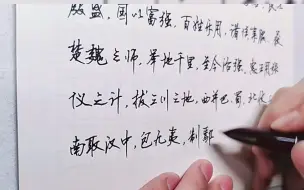 殷盛，国以富强，百姓乐用，诸侯亲服，获
楚魏之师，举地千里，至今治强。惠王用张
仪之计，拔三川之地，西并巴、蜀，北收上
南取汉中，包九夷，制鄢